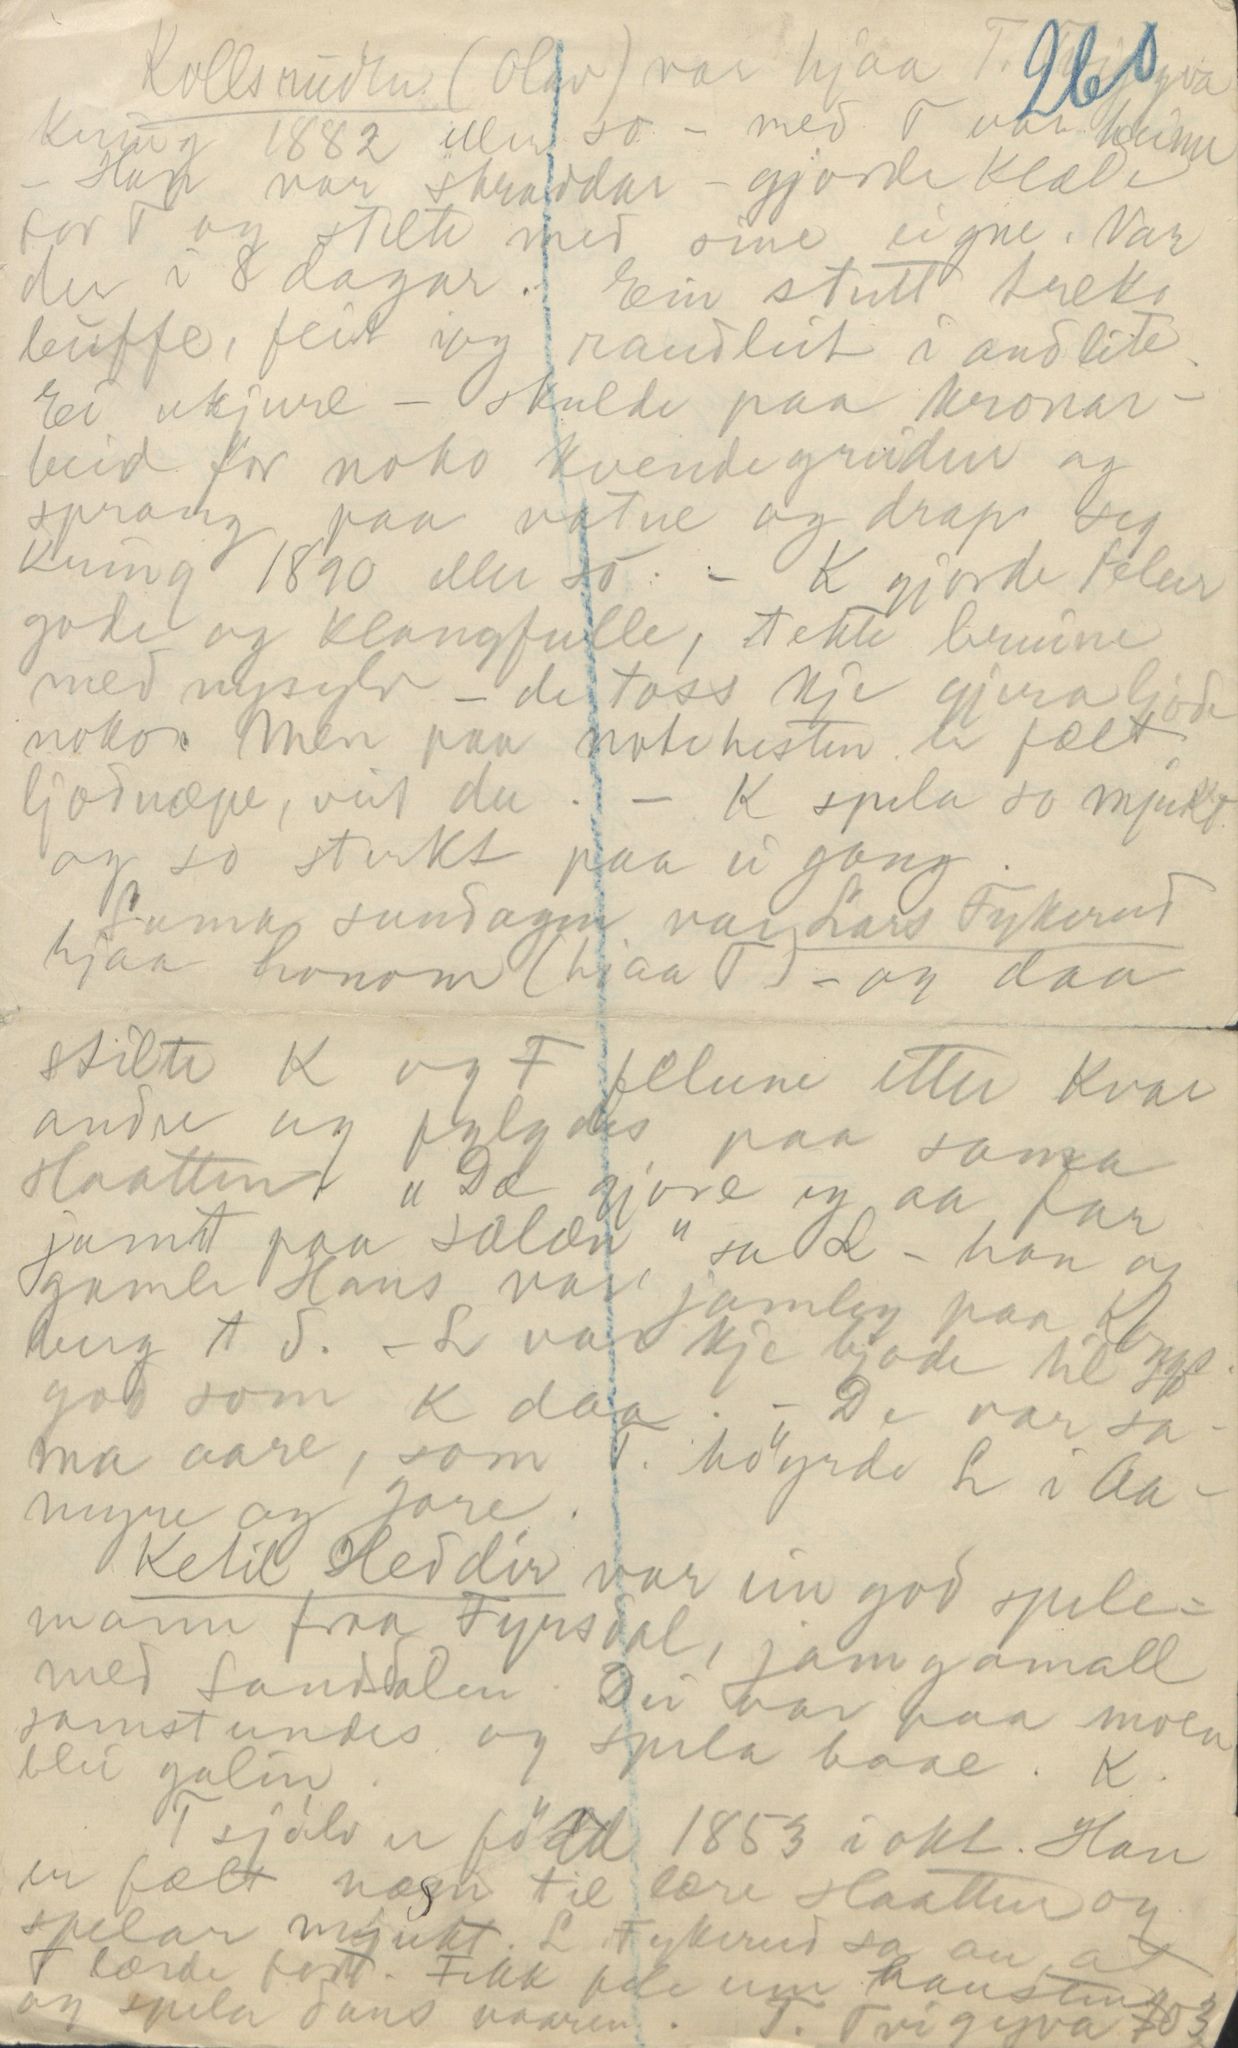 260
Kollsruden (Olav) var hjaa T. Trigyva
kring 1882 eller so - med T var heime
- Han var skraddar - gjorde Klæde
for T og stilte med sine eigne. Var
der i 8 dagar. Ein stutt treko
buffe, feit og raudleit i andlite.
Ei ukjure - skulde paa kronar-
beid for noko kvende greidur og
sprang paa vatne og drap seg
kring 1890 eller so. - K gjorde felur
gode og klangfulle, tekte brune
med nysylv - de toss kje gjera ljode
noko. Men paa notehesten er fælt
ljodnæpe, veit du. - K spela so mjukt
og so sterkt paa ei gong.
Sama sundagen var Lars Fykerud
hjaa honom (hjaa T) - og daa
stilte K og F felune etter kvar
andre og fylgdes paa sama
slaatten. "De gjore eg aa far
jamt paa Sælæn" sa L - han og
gamle Hans var jamleg paa Klygge-
berg i S. - L var kje bjode til
god som K daa. - De var sa-
ma aare, som T. høyrde L i Aa-
myre og Jore.
Ketil Heddir var ein god spele=
mann fraa Fyrisdal, jamgamall
med Sandsdalen. Dei var paa moen
samstundes og spela baae. K.
blei galin.
T sjølv er født 1853 i okt. Han
er fælt næm til lære slaattur og
spelar mjukt. L Fykerud sa au at
T lærde fort. Fekk fele um hausten
og spela dans vaaren. T. Trigyva 703